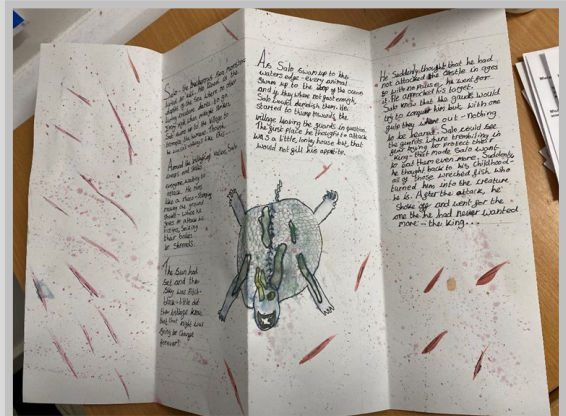 Salo - the
lived in
depths of the
creatures dare to go.
the village to
the humans. Though,
he wasn't always like this...
Around the village halves, Salo
creeps and stalks
everyone, waiting to
attack. He runs
like a rhino - stomping
moving the ground
beneath - when he
goes to attack his
victims, Slicing
their bodies
to shreads.
The Sun had
set and the
Sky was Pitch-
black - little did
the village know
that that night was
going to change
forever!
As Salo swam up to the
waters edge - every animal
Swam up to the top of the ocean
and if they where not fast enough,
Salo would demolish them. He
Started to stomp towards the
village leaving the guards in question.
The first place he thought to attack
was a little, lonley house but, that
would not fill his appetite.
He Suddenly thought that he had
not attacked the castle in ages
so with no noise, he went for
it. He approached his target.
Salo knew that the guards would
try to conquer him but with one
gulp they where out - Nothing
to be heard. Salo could see
the guards where trembling in
fear trying to protect their
King - that made Salo want
to eat them even more. Suddenly,
he thought back to his childhood -
all of those wreched fish who
turned him into the creature
he is. After the attack, he
shook off and went for the
one the he had never wanted
more - the king...